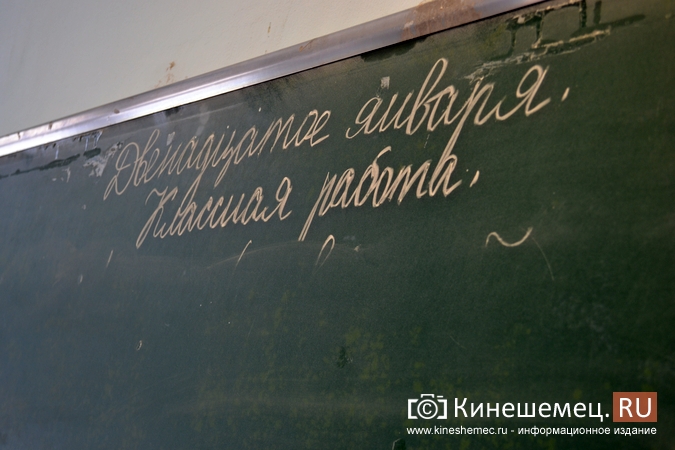 Двенадцатое января.
Классная работа.
Кинешемец.RU
www.kineshemec.ru - информационное издание